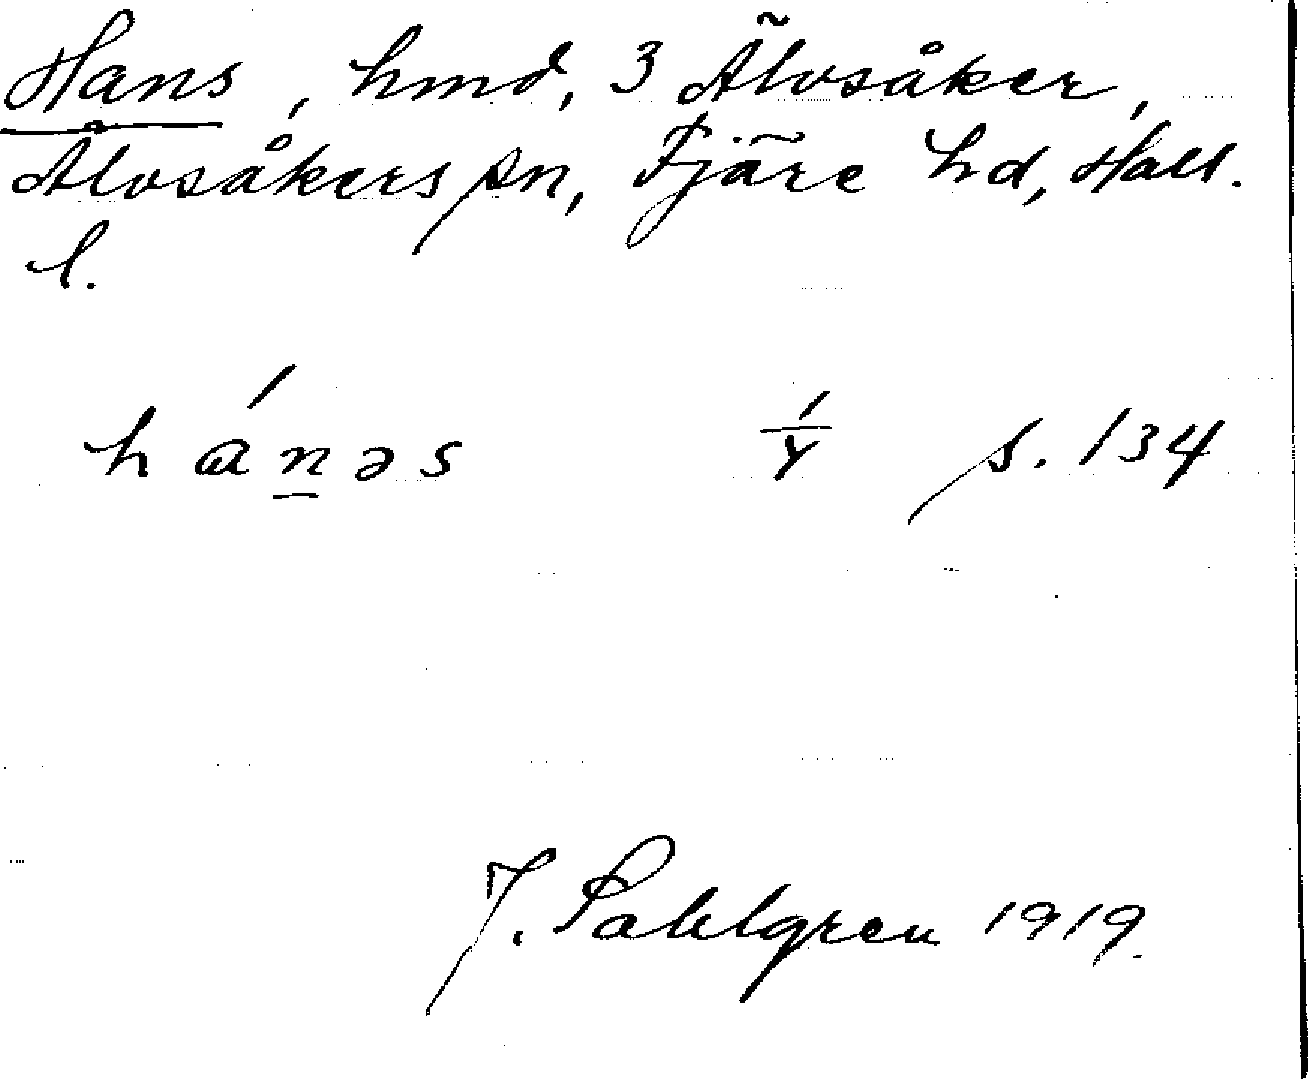 Hans, hmd, 3 Älvsåker,
Älvsåkers sn, Fjäre hd, Hall.
l.
hánəs 1/4 s. 134
J. Sahlgren 1919.